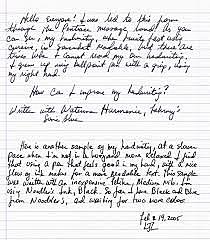 Hello everyone! I was led to this forum
through the Pentrace message board. As you
can see, my handwriting, when
cursive, is somewhat readable, but there are
times when I cannot read my own handwriting.
I grew up using ballpoint pens with a grip, using
my right hand.
How can I improve my handwriting?
Written with Waterman Harmonie,
Here is another sample of my handwriting, at a slower
pace when I'm not in a hurry and more relaxed. I find
that using a pen that feels good in my hand, with a nice
flow of ink makes for a more readable text. This sample
was written with an inexpensive Pelikan, Medium Nib. I'm
using Noodler's Ink, Black. So far I love Black and Blue
from Noodler's, and waiting for two more colors.
Feb 19, 2005